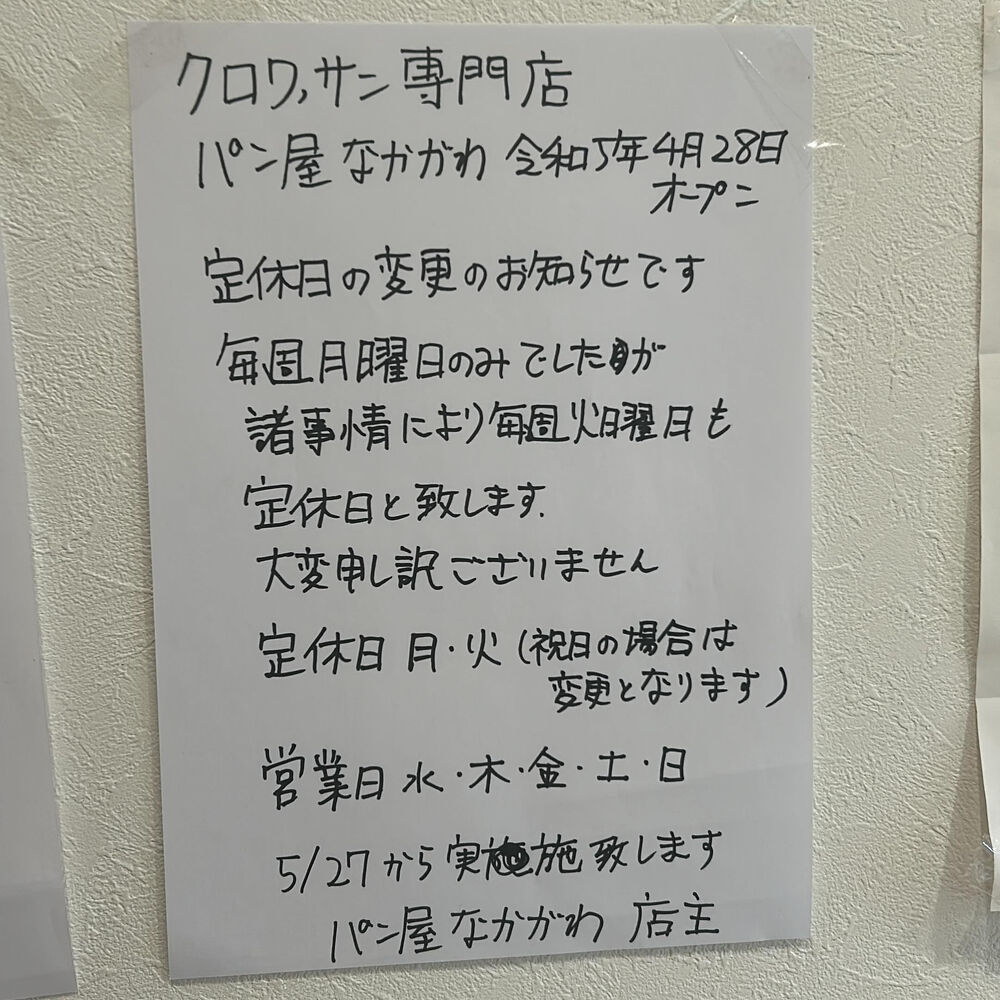 クロワッサン専門店
パン屋 なかがわ 令和5年4月28日
オープン
定休日の変更のお知らせです
毎週月曜日のみでしたが
諸事情により毎週火曜日も
定休日と致します.
大変申し訳ございません
定休日 月・火 (祝日の場合は
変更となります)
営業日 水・木・金・土・日
5/27から実施致します
パン屋 なかがわ 店主